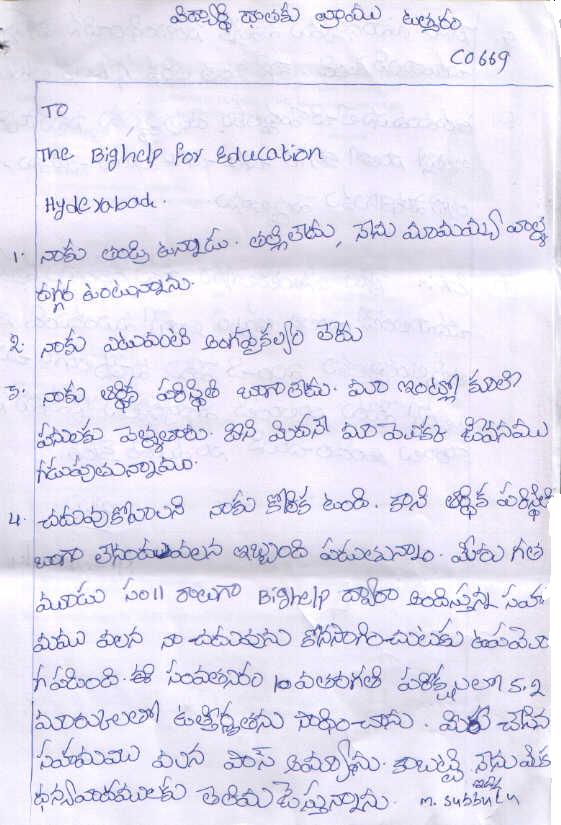 విద్యార్థి దాతకు వ్రాయు ఉత్తరం
CO669
TO
The Bighelp for Education
Hyderabad.
1. నాకు తండ్రి ఉన్నాడు. తల్లిలేదు, నేను మామయ్య వాళ్ళ
దగ్గర ఉంటున్నాను.
2. నాకు ఎటువంటి అంగవైకల్యం లేదు
3. నాకు ఆర్థిక పరిస్థితి బాగాలేదు. మా ఇంట్లో కూలి
పనులకు వెళ్ళుతారు. దాని మీదనే మా జీవనము
గడుపుతున్నాము.
4. చదువుకోవాలని నాకు కోరిక ఉంది. కాని ఆర్థిక పరిస్థితి
బాగా లేనందువలన ఇబ్బంది పడుతున్నాం. మీరు గత
మూడు సం॥ రాలుగా Bighelp ద్వారా అందిస్తున్న సహా
యము వలన నా చదువును కొనసాగించుటకు ఉపయో
గపడింది. ఈ సంవత్సరం 10 వతరగతి పరీక్షలలో 5.2
మార్కులతో ఉత్తీర్ణతను సాధించాను. మీరు చేసిన
సహాయము వలన పాస్ అయ్యాను. కాబట్టి నేను మీకు
ధన్యవాదములకు తెలియజేస్తున్నాను. M. Subbulu